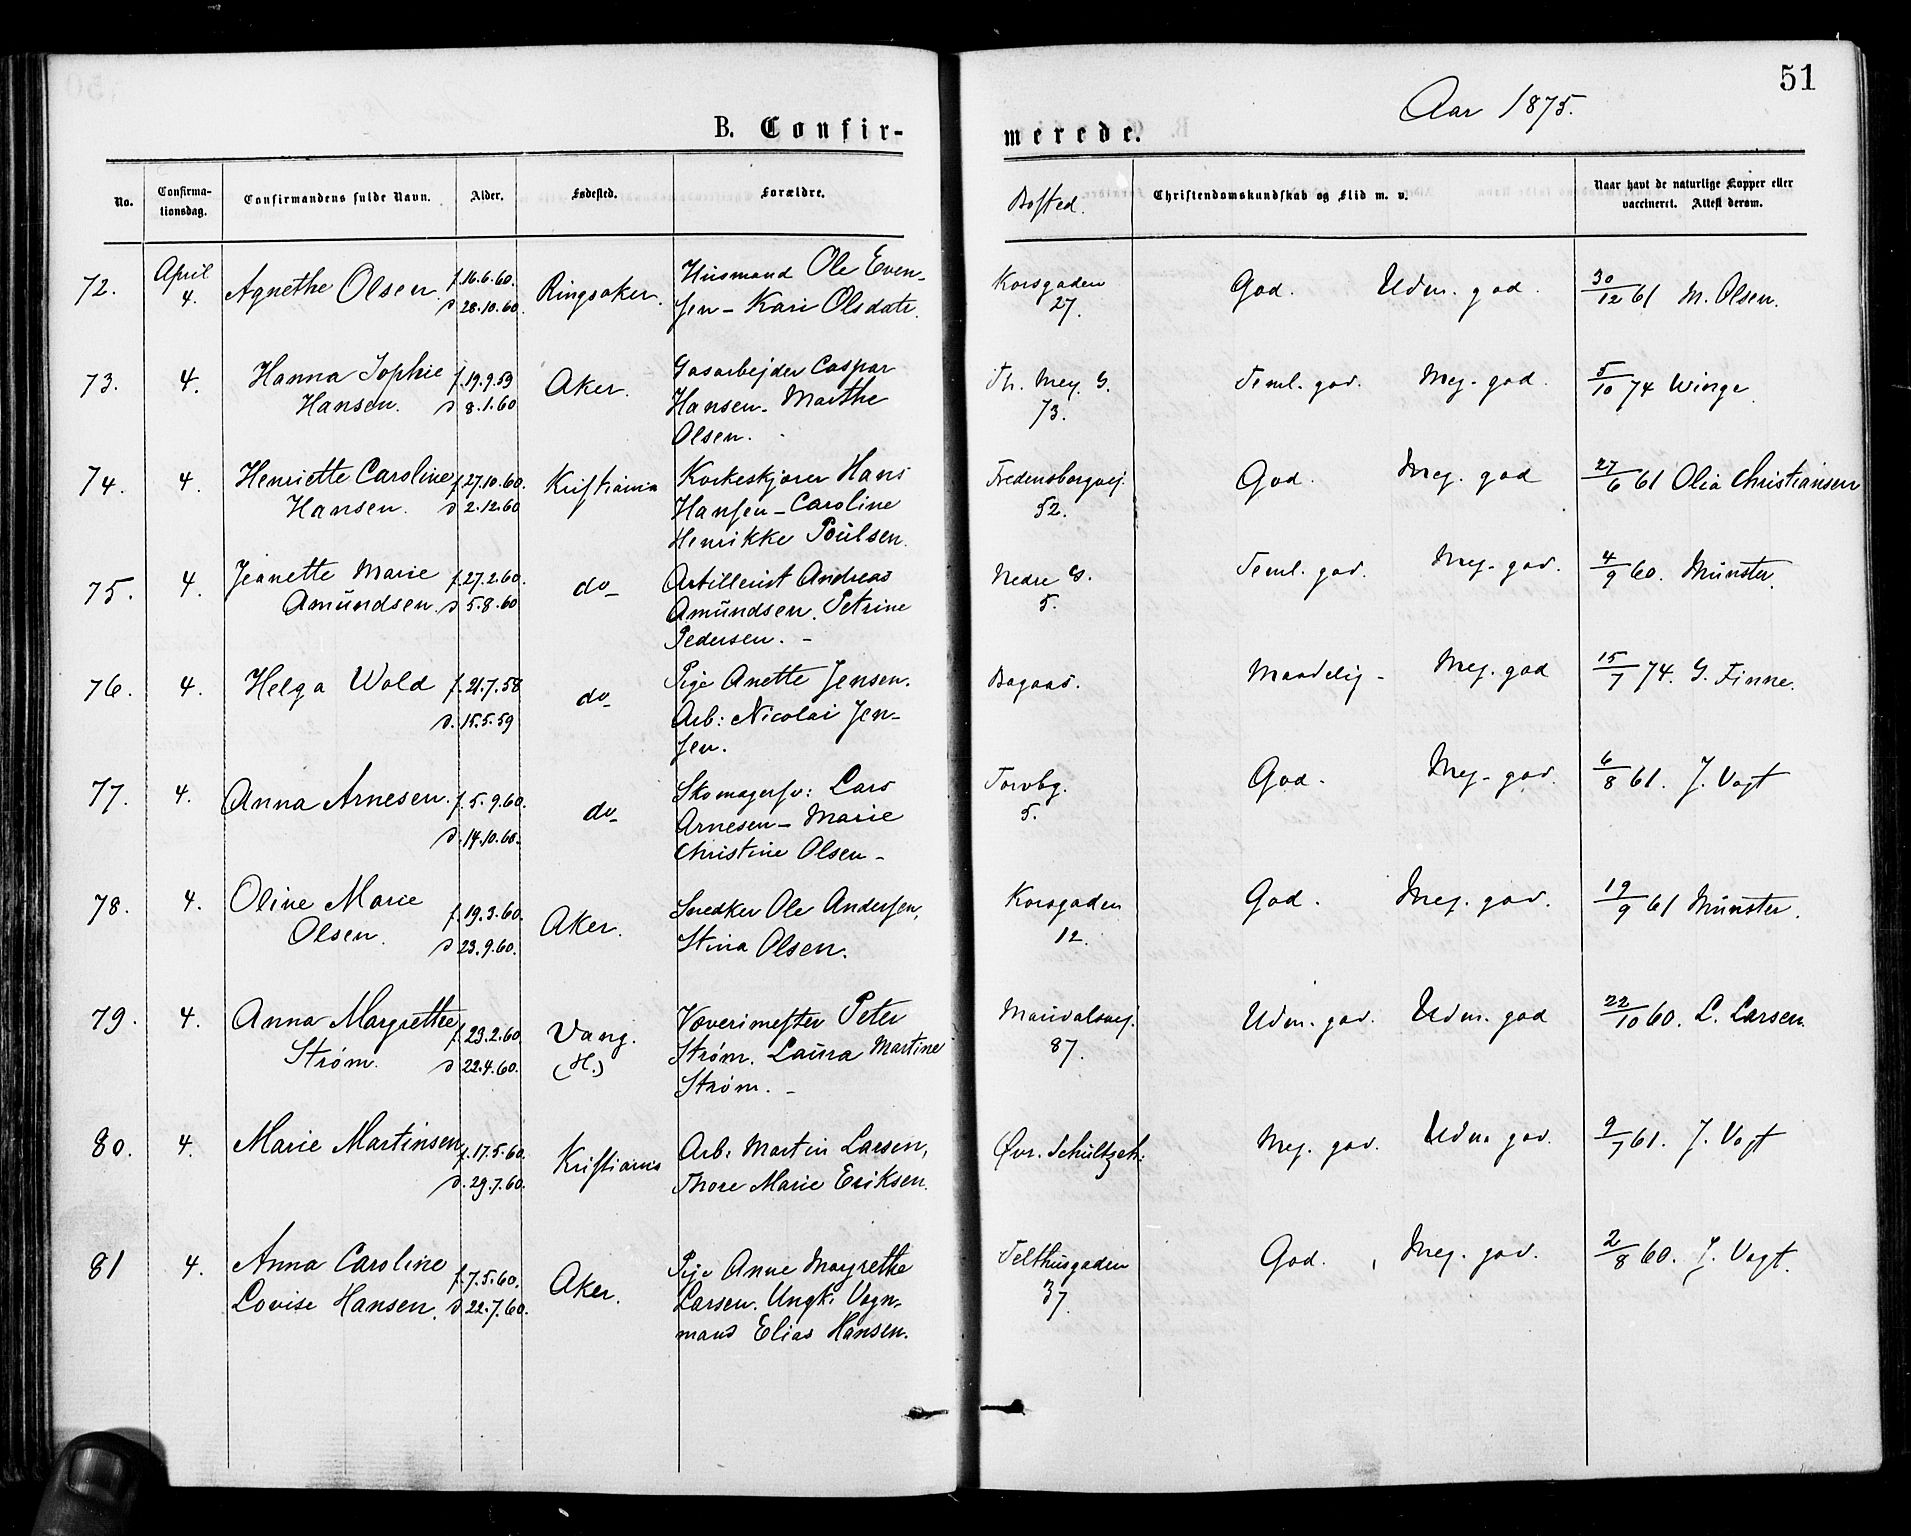 51
Aar 1875.
B. Confir-
merede.
No.
Confirma-
tionsdag.
Confirmandens fulde Navn.
Alder.
Fødested.
Forældre.
Bosted.
Christendomskundskab og Flid m. v.
Naar havt de naturlige Kopper eller
vaccineret. Attest derom.
72. April 4. Agnethe Olsen f. 16.6.60. d 28.10.60. Ringsaker. Husmand Ole Even-
sen - Kari Olsdatr. Korsgaden 27. God. Udm. god. 30/12 61 M. Olsen.
73. 4. Hanna Sophie f. 19.9.59 Aker. Gasarbejder Caspar
Hansen. d 8.1.60 Hansen. Marthe
Olsen. Th. Mey. G. 73. Teml. god. Meg. god. 5/10 74 Winge
74. 4. Henriette Caroline f 27.10.60. Kristiania Korkeskjærer Hans
Hansen. d 2.12.60 Hansen - Caroline
Henrikke Poulsen. Fredensborgvej. 52. God. Meg. god 27/6 61 Olia Christiansen
75. 4. Jeanette Marie f. 27.2.60. do Artillerist Andreas
Amundsen. d 5.8.60 Amundsen. Petrine
Pedersen. - Nedre G. 5. Teml. god. Meg. god. 4/9 60. Münster.
76. 4. Helga Wold f. 21.7.58 d. 15.5.59 do Pige Anette Jensen.
Arb: Nicolai Jen-
sen. Bagaas. Maadelig - Meg. god 15/7 74. G. Finne.
77. 4. Anna Arnesen. f. 5.9.60. d. 14.10.60. do Skomagersv: Lars
Arnesen - Marie
Christine Olsen - Torvbg. 5. God. Meg. god. 6/8 61. J. Vogt
78. 4. Oline Marie f. 19.3.60. Aker. Snedker Ole Andersen,
Olsen. d 23.9.60. Stina Olsen. Korsgaden 12. God. Meg. god. 19/9 61 Münster.
79. 4. Anna Margrethe f. 23.2.60. Vang. (H.) Væverimester Peter
Strøm. d 22.4.60. Strøm. Laura Martine
Strøm. - Maridalsvej. 87. Udm. god. Udm. god 22/10 60. L. Larsen.
80. 4. Marie Martinsen f. 17.5.60. d. 29.7.60. Kristiania Arb. Martin Larsen,
Thore Marie Eriksen. Øvr. Schultzeh: Meg. god. Udm. god. 9/7 61. J. Vogt
81 4. Anna Caroline f. 7.5.60. Aker. Pige Anne Margrethe
Lovise Hansen. d 22.7.60. Larsen. Ungk. Vogn-
mand Elias Hansen. Telthusgaden 37. God. Meg. god. 2/8 60. J. Vogt.